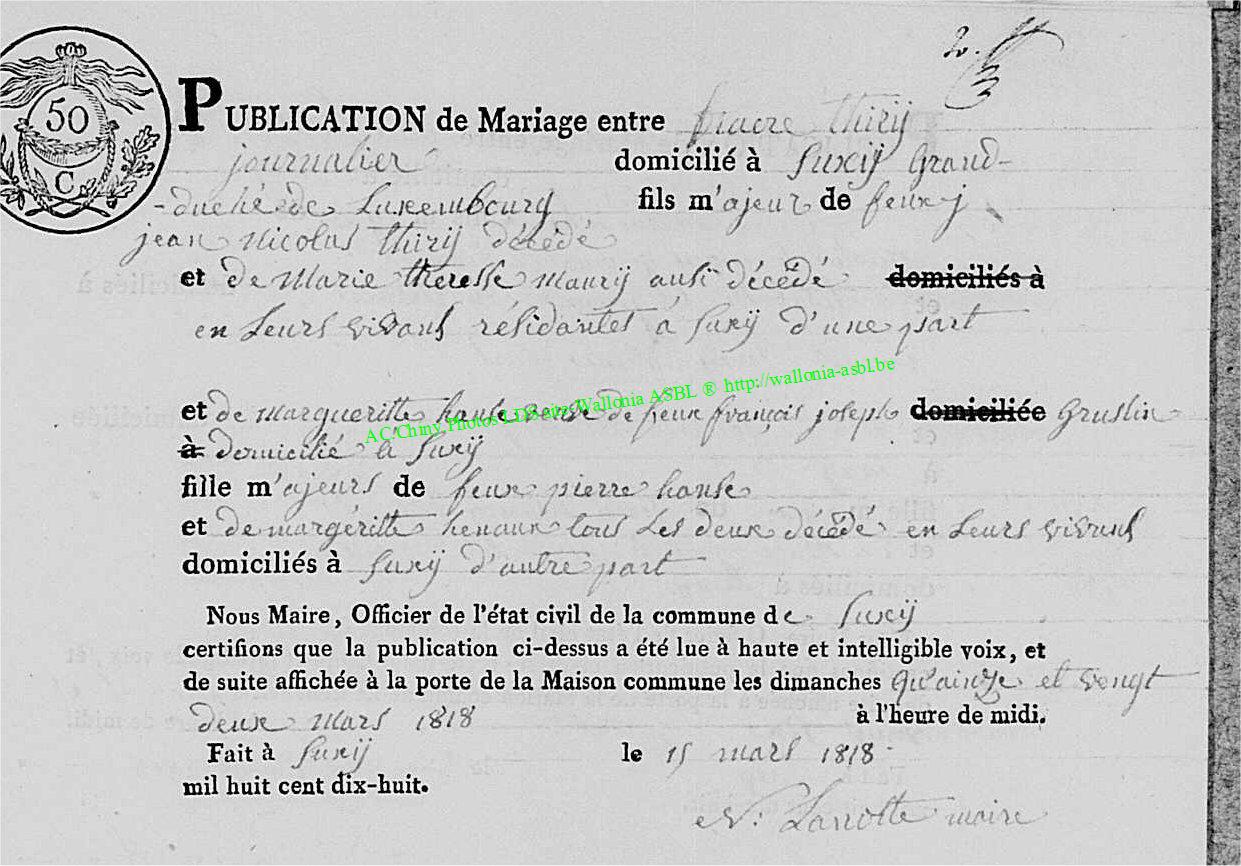 2.
50
C
PUBLICATION de Mariage entre fiacre thirÿ
journalier domicilié à Suxÿ Grand-
-duché de Luxembourg fils m'ajeur de feux j
jean Nicolas thirÿ décédé
et de Marie theresse Maurÿ ausi décédé domiciliés à
en Leurs vivans résidantes à Suxÿ d'une part
et de margueritte hanse veuve de feux françois joseph domiciliée Gruslin
à domicilié à Suxÿ
fille m'ajeurs de feux pierre hanse
et de margéritte henaux tous Les deux décédé en Leurs vivans
domiciliés à Suxÿ d'autre part
Nous Maire, Officier de l'état civil de la commune de Suxÿ
certifions que la publication ci-dessus a été lue à haute et intelligible voix, et
de suite affichée à la porte de la Maison commune les dimanches Qu'ainze et vengt
deux mars 1818 à l'heure de midi.
Fait à Suxÿ le 15 mars 1818
mil huit cent dix-huit.
N: Lanotte maire
AC.Chiny Photos LDS site Wallonia ASBL ® http://wallonia-asbl.be